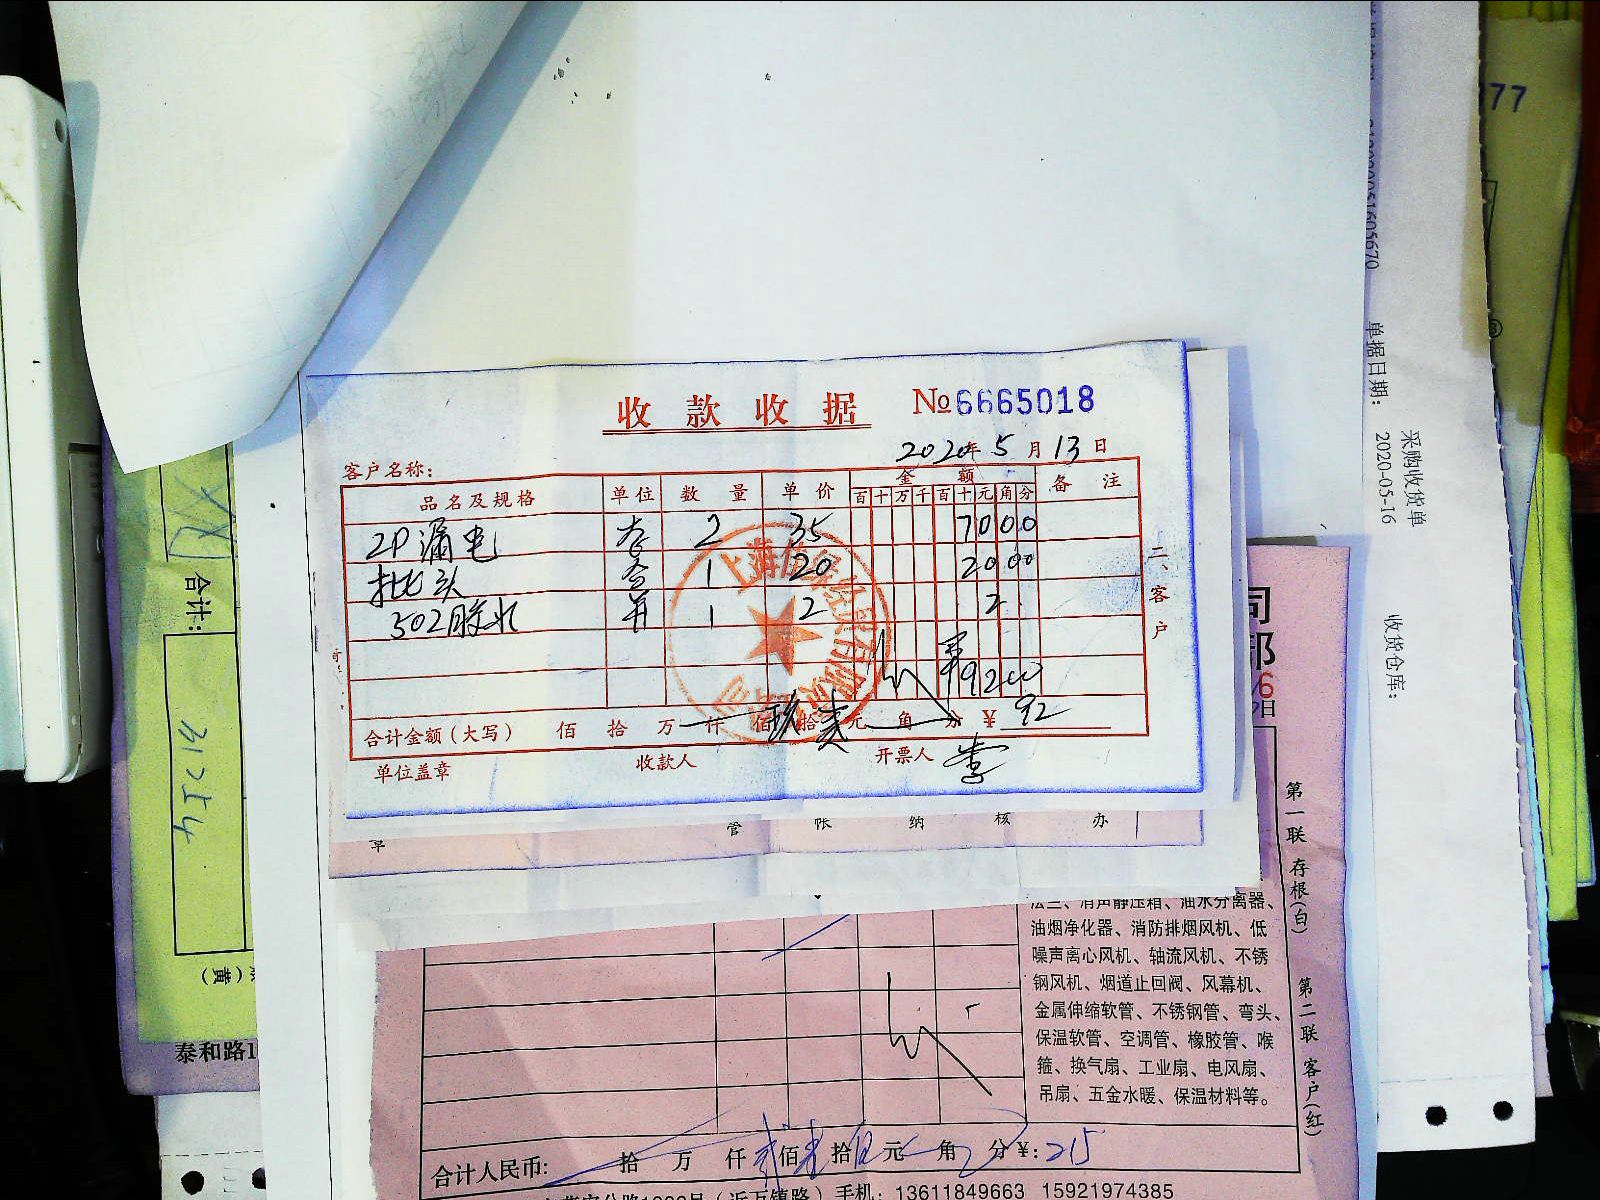 收款收据 №6665018
2020年5月13日
客户名称:
品名及规格 单位 数量 单价 金额 备注
百十万千百十元角分
2P漏电 2 35 7000
批头 1 20 2000
502胶水 1 2 2
9200
合计金额(大写) 佰 拾 万 仟 佰 玖拾 贰元 角 分 ¥ 92
单位盖章 收款人 开票人 李
二、客户
管 帐 纳 核 办
77
单据日期:
采购收货单
2020-05-16
收货仓库:
合计:
31254
(黄)
泰和路1
司
部
第一联 存根(白) 第二联 客户(红)
法兰、消声静压箱、油水分离器、
油烟净化器、消防排烟风机、低
噪声离心风机、轴流风机、不锈
钢风机、烟道止回阀、风幕机、
金属伸缩软管、不锈钢管、弯头、
保温软管、空调管、橡胶管、喉
箍、换气扇、工业扇、电风扇、
吊扇、五金水暖、保温材料等。
合计人民币: 拾 万 仟 贰佰 壹拾 伍元 角 分¥:215
手机: 13611849663 15921974385